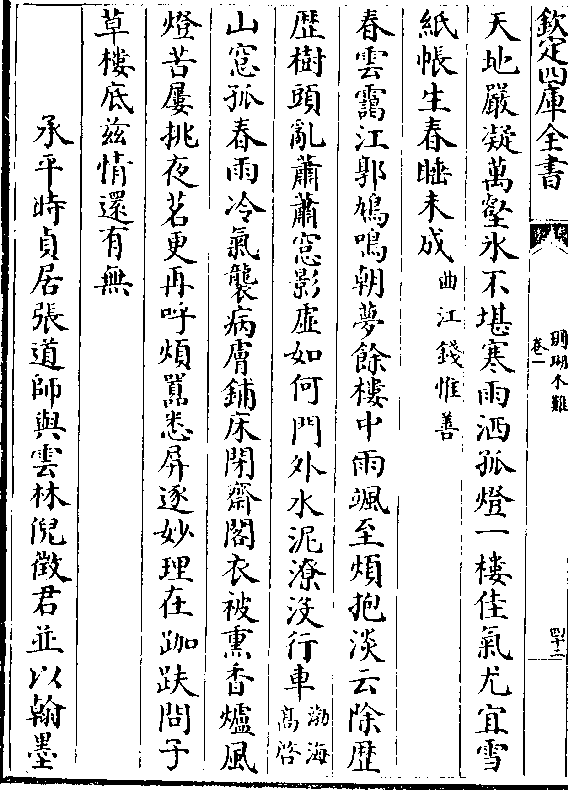 欽定四庫全書
珊瑚木難
卷一
四十二
天地嚴凝萬壑氷不堪寒雨洒孤燈一樓佳氣尤宜雪
紙帳生春睡未成曲江錢惟善
春雲靄江郭鳩鳴朝夢餘樓中雨颯至煩抱淡云除歴
歴樹頭亂蕭蕭窓影虛如何門外水泥潦沒行車渤海高啓
山窓孤春雨冷氣襲病膚鋪床閉齋閣衣被熏香爐風
燈苦屢挑夜茗更再呼煩囂悉屏逐妙理在跏趺問子
草樓底兹情還有無
承平時貞居張道師與雲林倪徵君並以翰墨